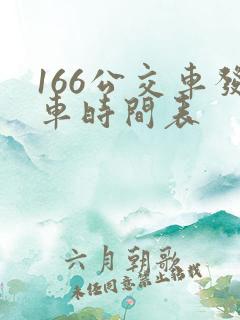 166公交車發
車時間表
六月朝歌
未經同意禁止轉載